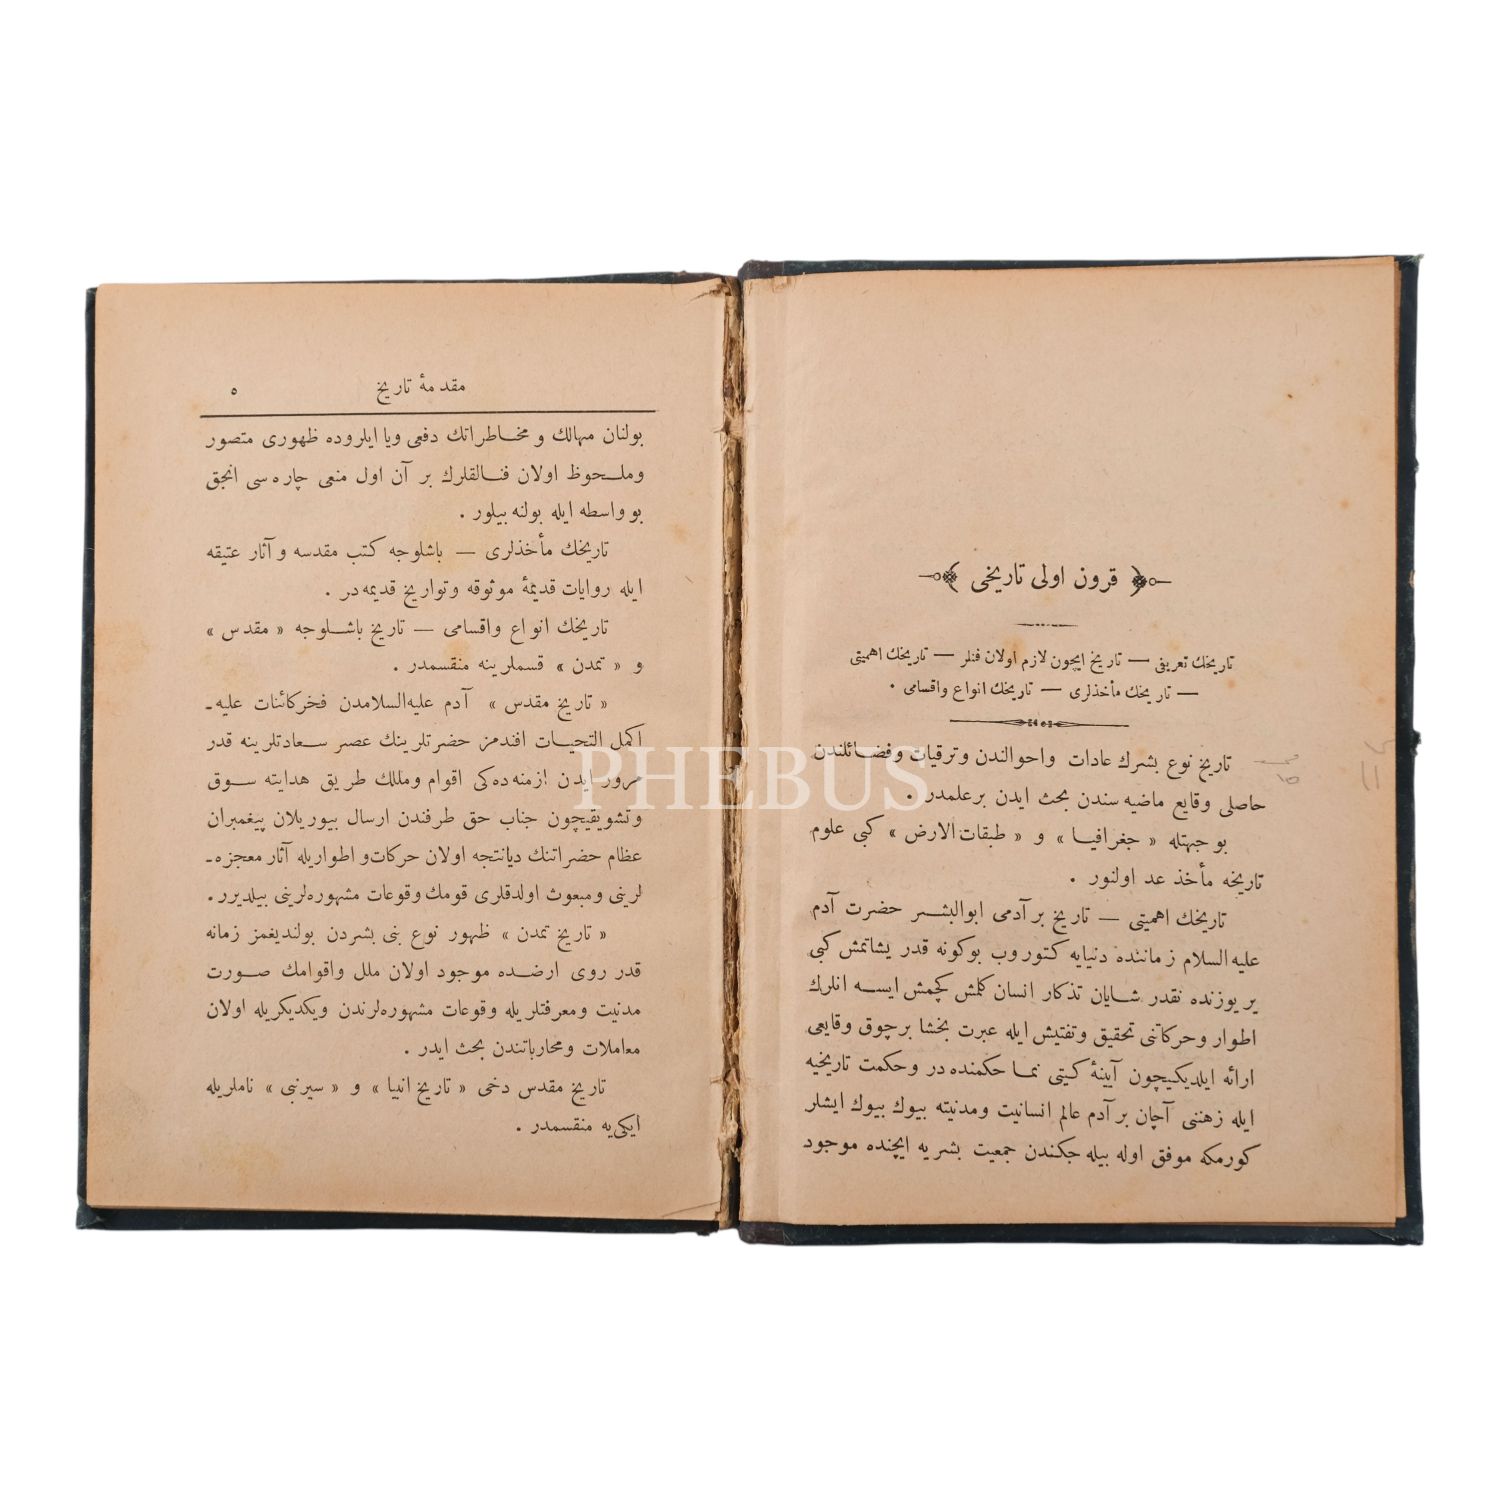 قرون اولی تاریخی
تاریخك تعریفی — تاریخ ایچون لازم اولان فنلر — تاریخك اهمیتی
— تاریخك مأخذلری — تاریخك انواع واقسامی .
تاریخ نوع بشرك عادات واحوالندن وترقیات وفضائلندن
حاصلی وقایع ماضیه سندن بحث ایدن برعلمدر .
بوجهتله « جغرافیا » و « طبقات الارض » کبی علوم
تاریخه مأخذ عد اولنور .
تاریخك اهمیتی — تاریخ برآدمی ابوالبشر حضرت آدم
علیه السلام زماننده دنیایه کتوروب بوکونه قدر یشاتمش کبی
یریوزنده نقدر شایان تذکار انسان کلمش کچمش ایسه انلرك
اطوار وحرکاتنی تحقیق وتفتیش ایله عبرت بخشا برچوق وقایعی
ارائه ایلدیکیچون آیینهٔ کیتی نما حکمنده در وحکمت تاریخیه
ایله زهننی آچان برآدم عالم انسانیت ومدنیته بیوك بیوك ایشلر
کورمکه موفق اوله بیله جکندن جمعیت بشریه ایچنده موجود
مقدمهٔ تاریخ ٥
بولنان مهالك و مخاطراتك دفعی ویا ایلروده ظهوری متصور
وملحوظ اولان فنالقلرك بر آن اول منعی چاره سی انجق
بو واسطه ایله بولنه بیلور .
تاریخك مأخذلری — باشلوجه کتب مقدسه و آثار عتیقه
ایله روایات قدیمهٔ موثوقه وتواریخ قدیمه در .
تاریخك انواع واقسامی — تاریخ باشلوجه « مقدس »
و « تمدن » قسملرینه منقسمدر .
« تاریخ مقدس » آدم علیه السلامدن فخرکائنات علیه ـ
اکمل التحیات افندمز حضرتلرینك عصر سعادتلرینه قدر
مرور ایدن ازمنه ده کی اقوام ومللك طریق هدایته سوق
وتشویقیچون جناب حق طرفندن ارسال بیوریلان پیغمبران
عظام حضراتنك دیانتجه اولان حرکات و اطواریله آثار معجزه ـ
لرینی ومبعوث اولدقلری قومك وقوعات مشهوره لرینی بیلدیرر .
« تاریخ تمدن » ظهور نوع بنی بشردن بولندیغمز زمانه
قدر روی ارضده موجود اولان ملل واقوامك صورت
مدنیت ومعرفتلریله وقوعات مشهوره لرندن ویکدیکریله اولان
معاملات ومحارباتندن بحث ایدر .
تاریخ مقدس دخی « تاریخ انبیا » و « سیرنبی » ناملریله
ایکی یه منقسمدر .
PHEBUS